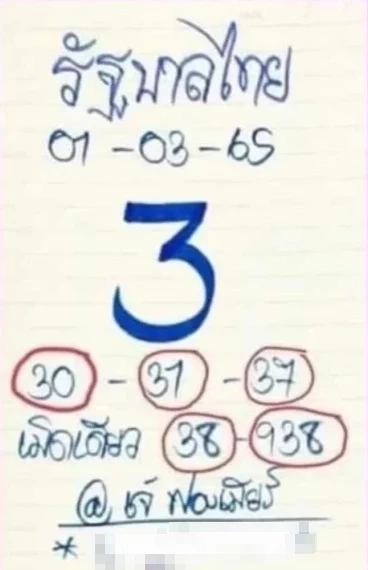 รัฐบาลไทย
01-03-65
3
30 - 31 - 37
เม็ดเดียว 38-938
@ เจ๊ฟองเบียร์
*